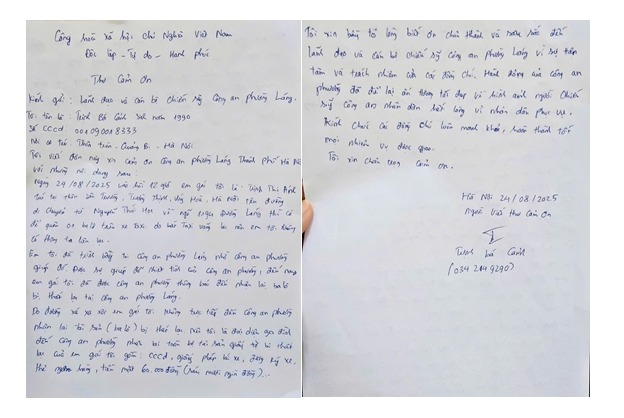 Cộng hòa xã hội chủ Nghĩa Việt Nam
Độc lập - Tự do - Hạnh phúc
Thư Cảm ơn
Kính gửi: Lãnh đạo và cán bộ chiến sỹ Công an phường Láng.
Tôi tên là: Trịnh Bá Cảnh Sinh năm 1990
Số CCCD 001090018333
Nơi cư trú: - Hà Nội.
Tôi viết đơn này xin cảm ơn công an phường Láng Thành phố Hà Nội
với những nội dung sau:
Ngày 24/08/2025 vào hồi 12 giờ em gái tôi là: Trịnh Thị Ánh
Hà Nội trên đường
di chuyển từ Nguyễn Thái Học về ngõ phường Láng thì có
để quên 01 ba lô trên xe Taxi. do bắt Taxi vãng lai nên em tôi không
có thông tin liên lạc.
Em tôi đã trình báng công an phường Láng nhờ công an phường
giúp đỡ. Được sự giúp đỡ nhiệt tình của công an phường, đến nay
em gái tôi đã được công an phường thông báo đến nhận lại ba lô
bị thất lạc tại công an phường Láng.
Do đường xá xa xôi em gái tôi không trực tiếp đến công an phường
nhận lại tài sản (ba lô) bị thất lạc nên tôi là đại diện gia đình
đến công an phường nhận lại toàn bộ tài sản giấy tờ bị thất
lạc của em gái tôi gồm: CCCD, giấy phép lái xe, đăng ký xe,
thẻ ngân hàng, tiền mặt 60.000 đồng (sáu mươi nghìn đồng)...
Tôi xin bày tỏ lòng biết ơn chân thành và sâu sắc đến
Lãnh đạo và cán bộ chiến sỹ công an phường Láng vì sự tận
tâm và trách nhiệm của các đồng chí. Hành động của công an
phường đã để lại ấn tượng tốt đẹp về hình ảnh người chiến
sỹ công an nhân dân hết lòng vì nhân dân phục vụ.
Kính chúc các đồng chí luôn mạnh khỏe, hoàn thành tốt
mọi nhiệm vụ được giao.
Tôi xin chân trọng cảm ơn.
Hà Nội 24/08/2025
Người viết thư cảm ơn
Trịnh bá Cảnh
(034 2149290)